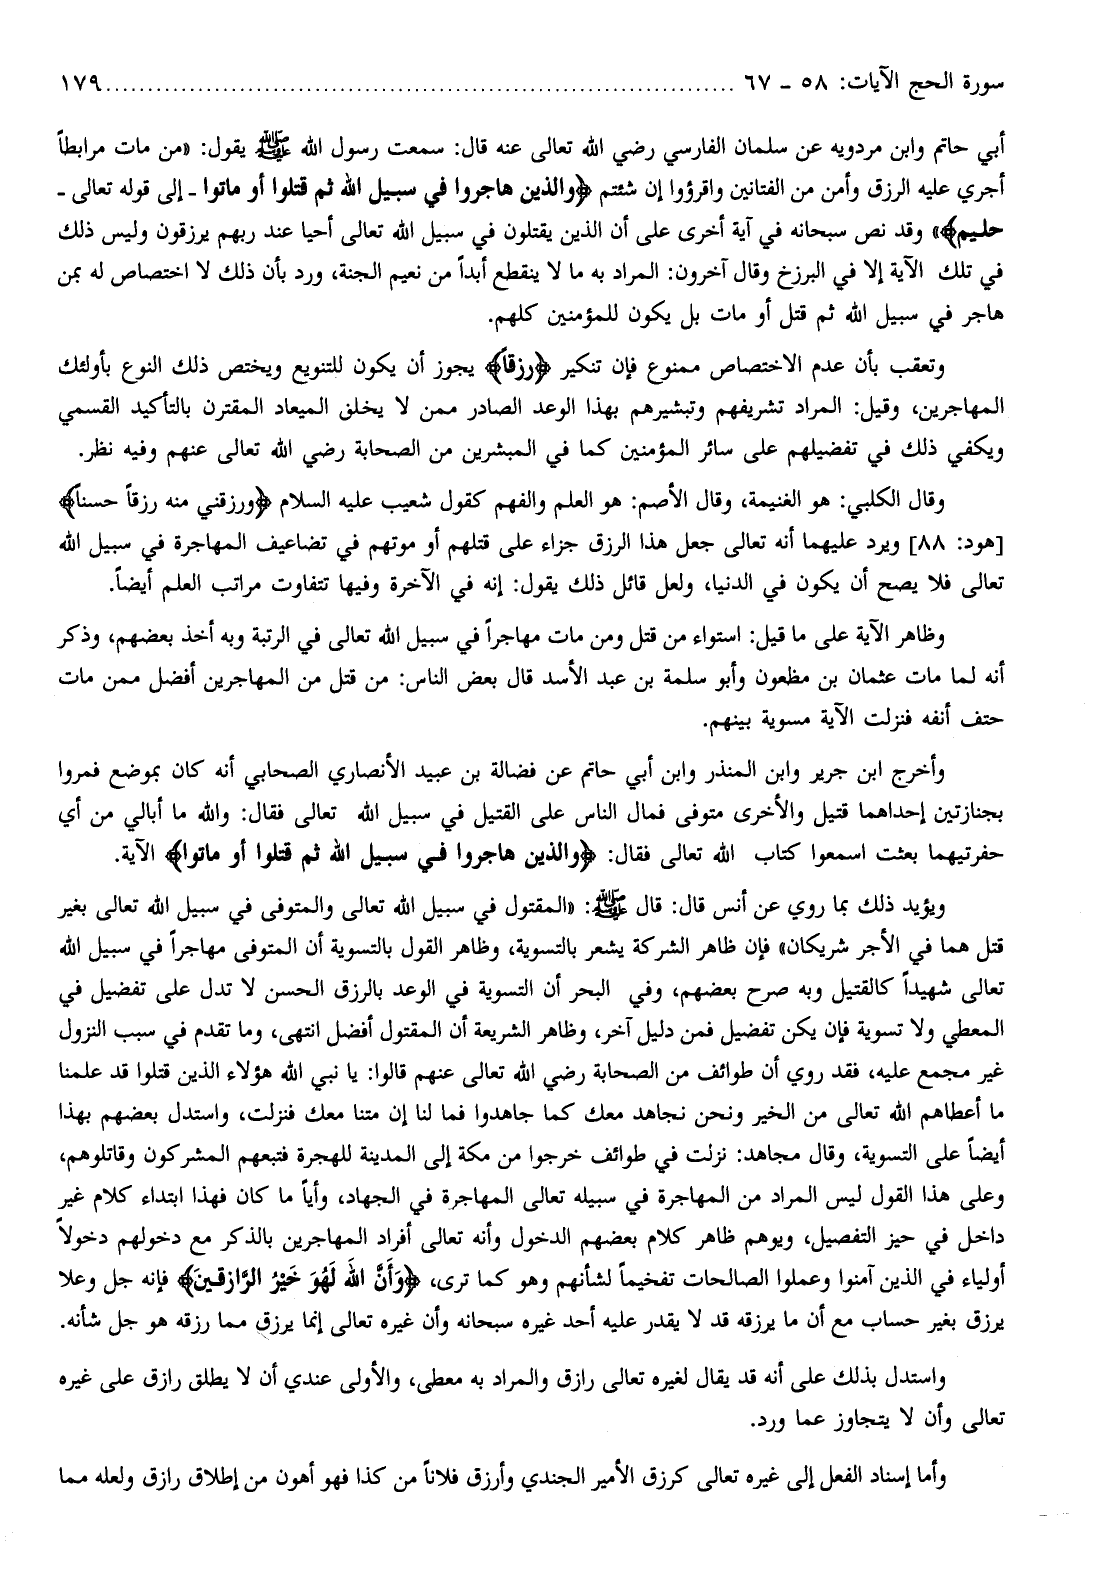 سورة الحج الآيات: ٥٨ ـ ٦٧ ........................................................................ ١٧٩
أبي حاتم وابن مردويه عن سلمان الفارسي رضي الله تعالى عنه قال: سمعت رسول الله ﷺ يقول: «من مات مرابطاً
أجري عليه الرزق وأمن من الفتانين واقرؤوا إن شئتم ﴿والذين هاجروا في سبيل الله ثم قتلوا أو ماتوا ـ إلى قوله تعالى ـ
حليم﴾» وقد نص سبحانه في آية أخرى على أن الذين يقتلون في سبيل الله تعالى أحيا عند ربهم يرزقون وليس ذلك
في تلك الآية إلا في البرزخ وقال آخرون: المراد به ما لا ينقطع أبداً من نعيم الجنة، ورد بأن ذلك لا اختصاص له بمن
هاجر في سبيل الله ثم قتل أو مات بل يكون للمؤمنين كلهم.
وتعقب بأن عدم الاختصاص ممنوع فإن تنكير ﴿رزقاً﴾ يجوز أن يكون للتنويع ويختص ذلك النوع بأولئك
المهاجرين، وقيل: المراد تشريفهم وتبشيرهم بهذا الوعد الصادر ممن لا يخلق الميعاد المقترن بالتأكيد القسمي
ويكفي ذلك في تفضيلهم على سائر المؤمنين كما في المبشرين من الصحابة رضي الله تعالى عنهم وفيه نظر.
وقال الكلبي: هو الغنيمة، وقال الأصم: هو العلم والفهم كقول شعيب عليه السلام ﴿ورزقني منه رزقاً حسناً﴾
[هود: ٨٨] ويرد عليهما أنه تعالى جعل هذا الرزق جزاء على قتلهم أو موتهم في تضاعيف المهاجرة في سبيل الله
تعالى فلا يصح أن يكون في الدنيا، ولعل قائل ذلك يقول: إنه في الآخرة وفيها تتفاوت مراتب العلم أيضاً.
وظاهر الآية على ما قيل: استواء من قتل ومن مات مهاجراً في سبيل الله تعالى في الرتبة وبه أخذ بعضهم، وذكر
أنه لما مات عثمان بن مظعون وأبو سلمة بن عبد الأسد قال بعض الناس: من قتل من المهاجرين أفضل ممن مات
حتف أنفه فنزلت الآية مسوية بينهم.
وأخرج ابن جرير وابن المنذر وابن أبي حاتم عن فضالة بن عبيد الأنصاري الصحابي أنه كان بموضع فمروا
بجنازتين إحداهما قتيل والأخرى متوفى فمال الناس على القتيل في سبيل الله تعالى فقال: والله ما أبالي من أي
حفرتيهما بعثت اسمعوا كتاب الله تعالى فقال: ﴿والذين هاجروا في سبيل الله ثم قتلوا أو ماتوا﴾ الآية.
ويؤيد ذلك بما روي عن أنس قال: قال ﷺ: «المقتول في سبيل الله تعالى والمتوفى في سبيل الله تعالى بغير
قتل هما في الأجر شريكان» فإن ظاهر الشركة يشعر بالتسوية، وظاهر القول بالتسوية أن المتوفى مهاجراً في سبيل الله
تعالى شهيداً كالقتيل وبه صرح بعضهم، وفي البحر أن التسوية في الوعد بالرزق الحسن لا تدل على تفضيل في
المعطي ولا تسوية فإن يكن تفضيل فمن دليل آخر، وظاهر الشريعة أن المقتول أفضل انتهى، وما تقدم في سبب النزول
غير مجمع عليه، فقد روي أن طوائف من الصحابة رضي الله تعالى عنهم قالوا: يا نبي الله هؤلاء الذين قتلوا قد علمنا
ما أعطاهم الله تعالى من الخير ونحن نجاهد معك كما جاهدوا فما لنا إن متنا معك فنزلت، واستدل بعضهم بهذا
أيضاً على التسوية، وقال مجاهد: نزلت في طوائف خرجوا من مكة إلى المدينة للهجرة فتبعهم المشركون وقاتلوهم،
وعلى هذا القول ليس المراد من المهاجرة في سبيله تعالى المهاجرة في الجهاد، وأياً ما كان فهذا ابتداء كلام غير
داخل في حيز التفصيل، ويوهم ظاهر كلام بعضهم الدخول وأنه تعالى أفراد المهاجرين بالذكر مع دخولهم دخولاً
أولياء في الذين آمنوا وعملوا الصالحات تفخيماً لشأنهم وهو كما ترى، ﴿وَأَنَّ اللهَ لَهُوَ خَيْرُ الرَّازِقِينَ﴾ فإنه جل وعلا
يرزق بغير حساب مع أن ما يرزقه قد لا يقدر عليه أحد غيره سبحانه وأن غيره تعالى إنما يرزق مما رزقه هو جل شأنه.
واستدل بذلك على أنه قد يقال لغيره تعالى رازق والمراد به معطى، والأولى عندي أن لا يطلق رازق على غيره
تعالى وأن لا يتجاوز عما ورد.
وأما إسناد الفعل إلى غيره تعالى كرزق الأمير الجندي وأرزق فلاناً من كذا فهو أهون من إطلاق رازق ولعله مما